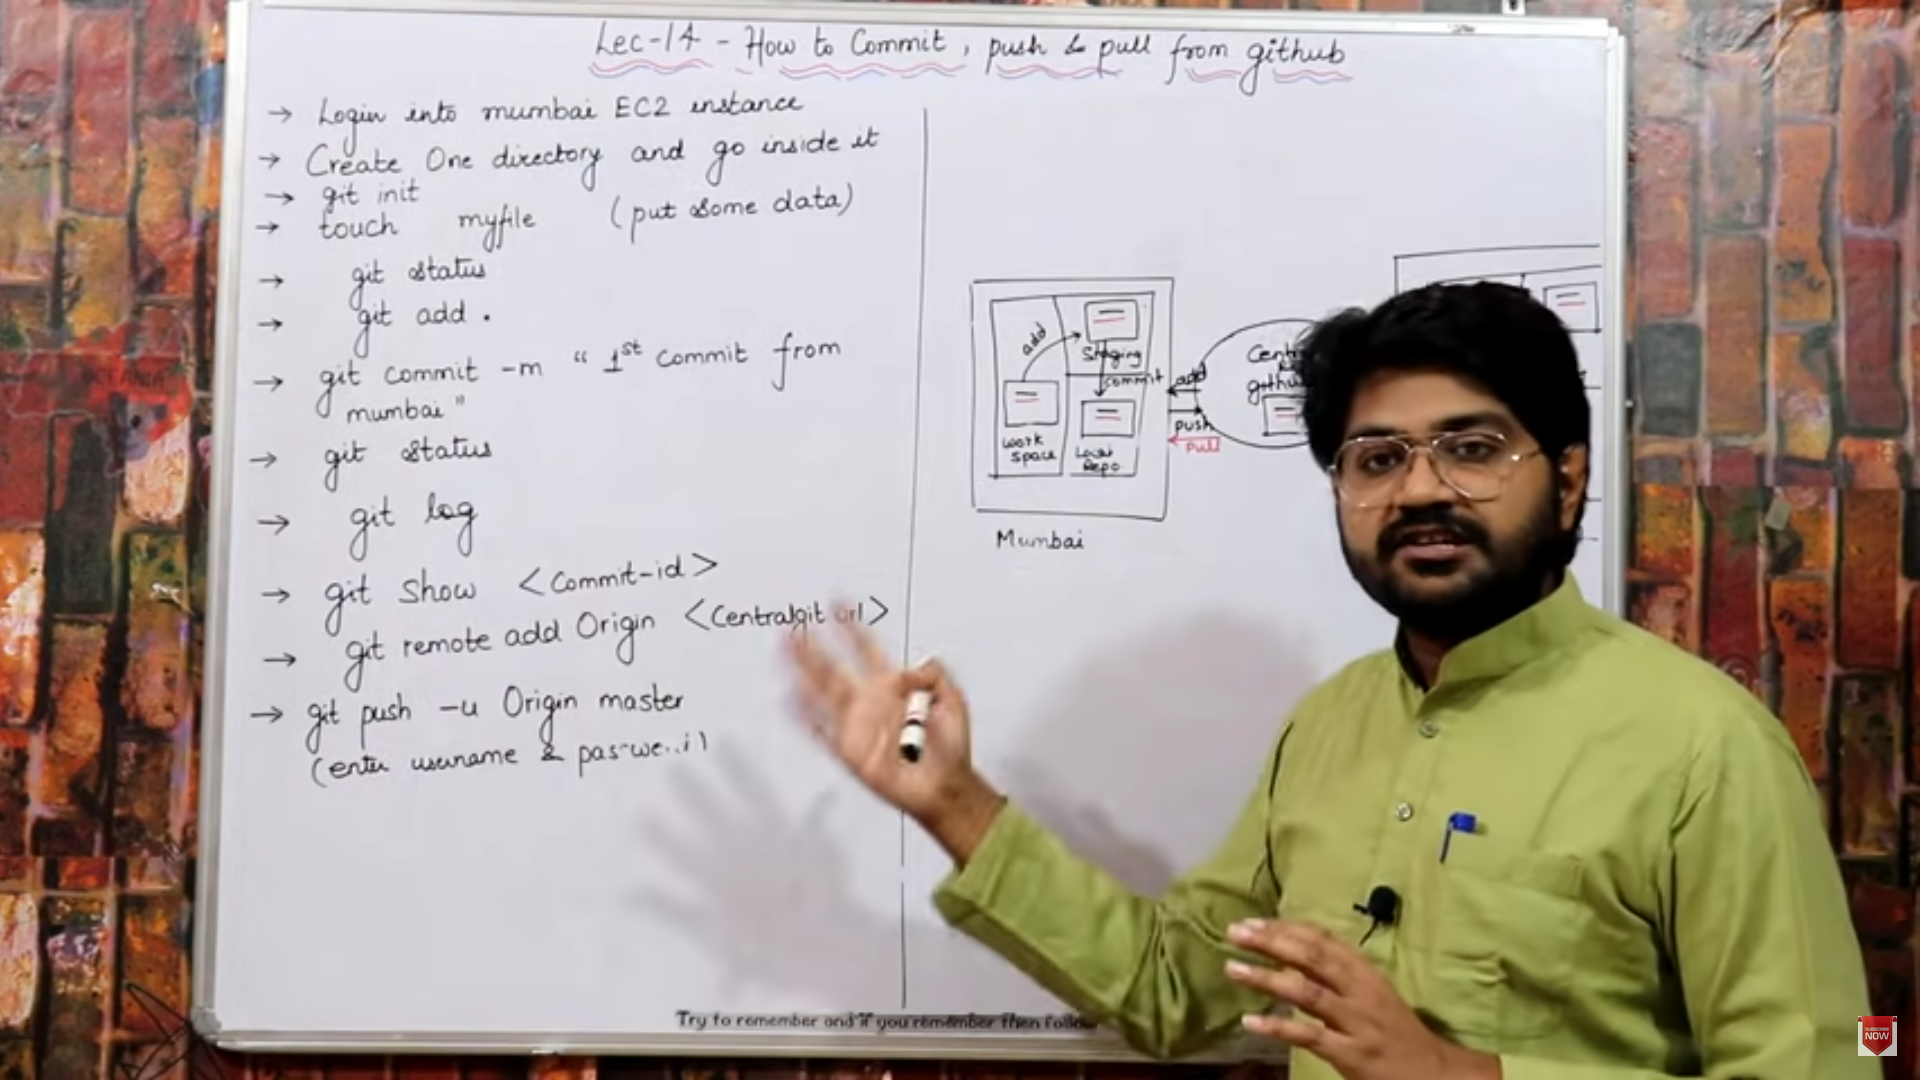 Lec-14 - How to Commit, push & pull from github
→ Login into mumbai EC2 instance
→ Create One directory and go inside it
→ git init
→ touch myfile (put some data)
→ git status
→ git add .
→ git commit -m "1st commit from
mumbai"
→ git status
→ git log
→ git show <Commit-id>
→ git remote add Origin <Centralgit url>
→ git push -u Origin master
(enter username &
add
Staging
commit
work
space
Local
Repo
Mumbai
add
push
pull
Try to remember and if you remember then
SUBSCRIBE
NOW